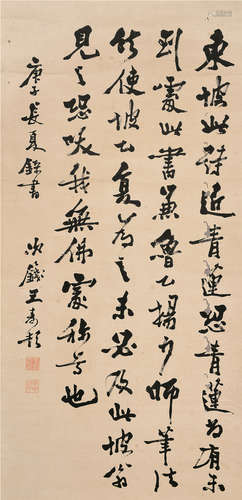 東坡此詩近青蓮恐青蓮尚有未
到處此書兼魯公楊少師筆法
使坡公復為之未必及此坡翁
見之恐咲我無佛處稱尊也
庚子長夏錄書
次籛王壽彭